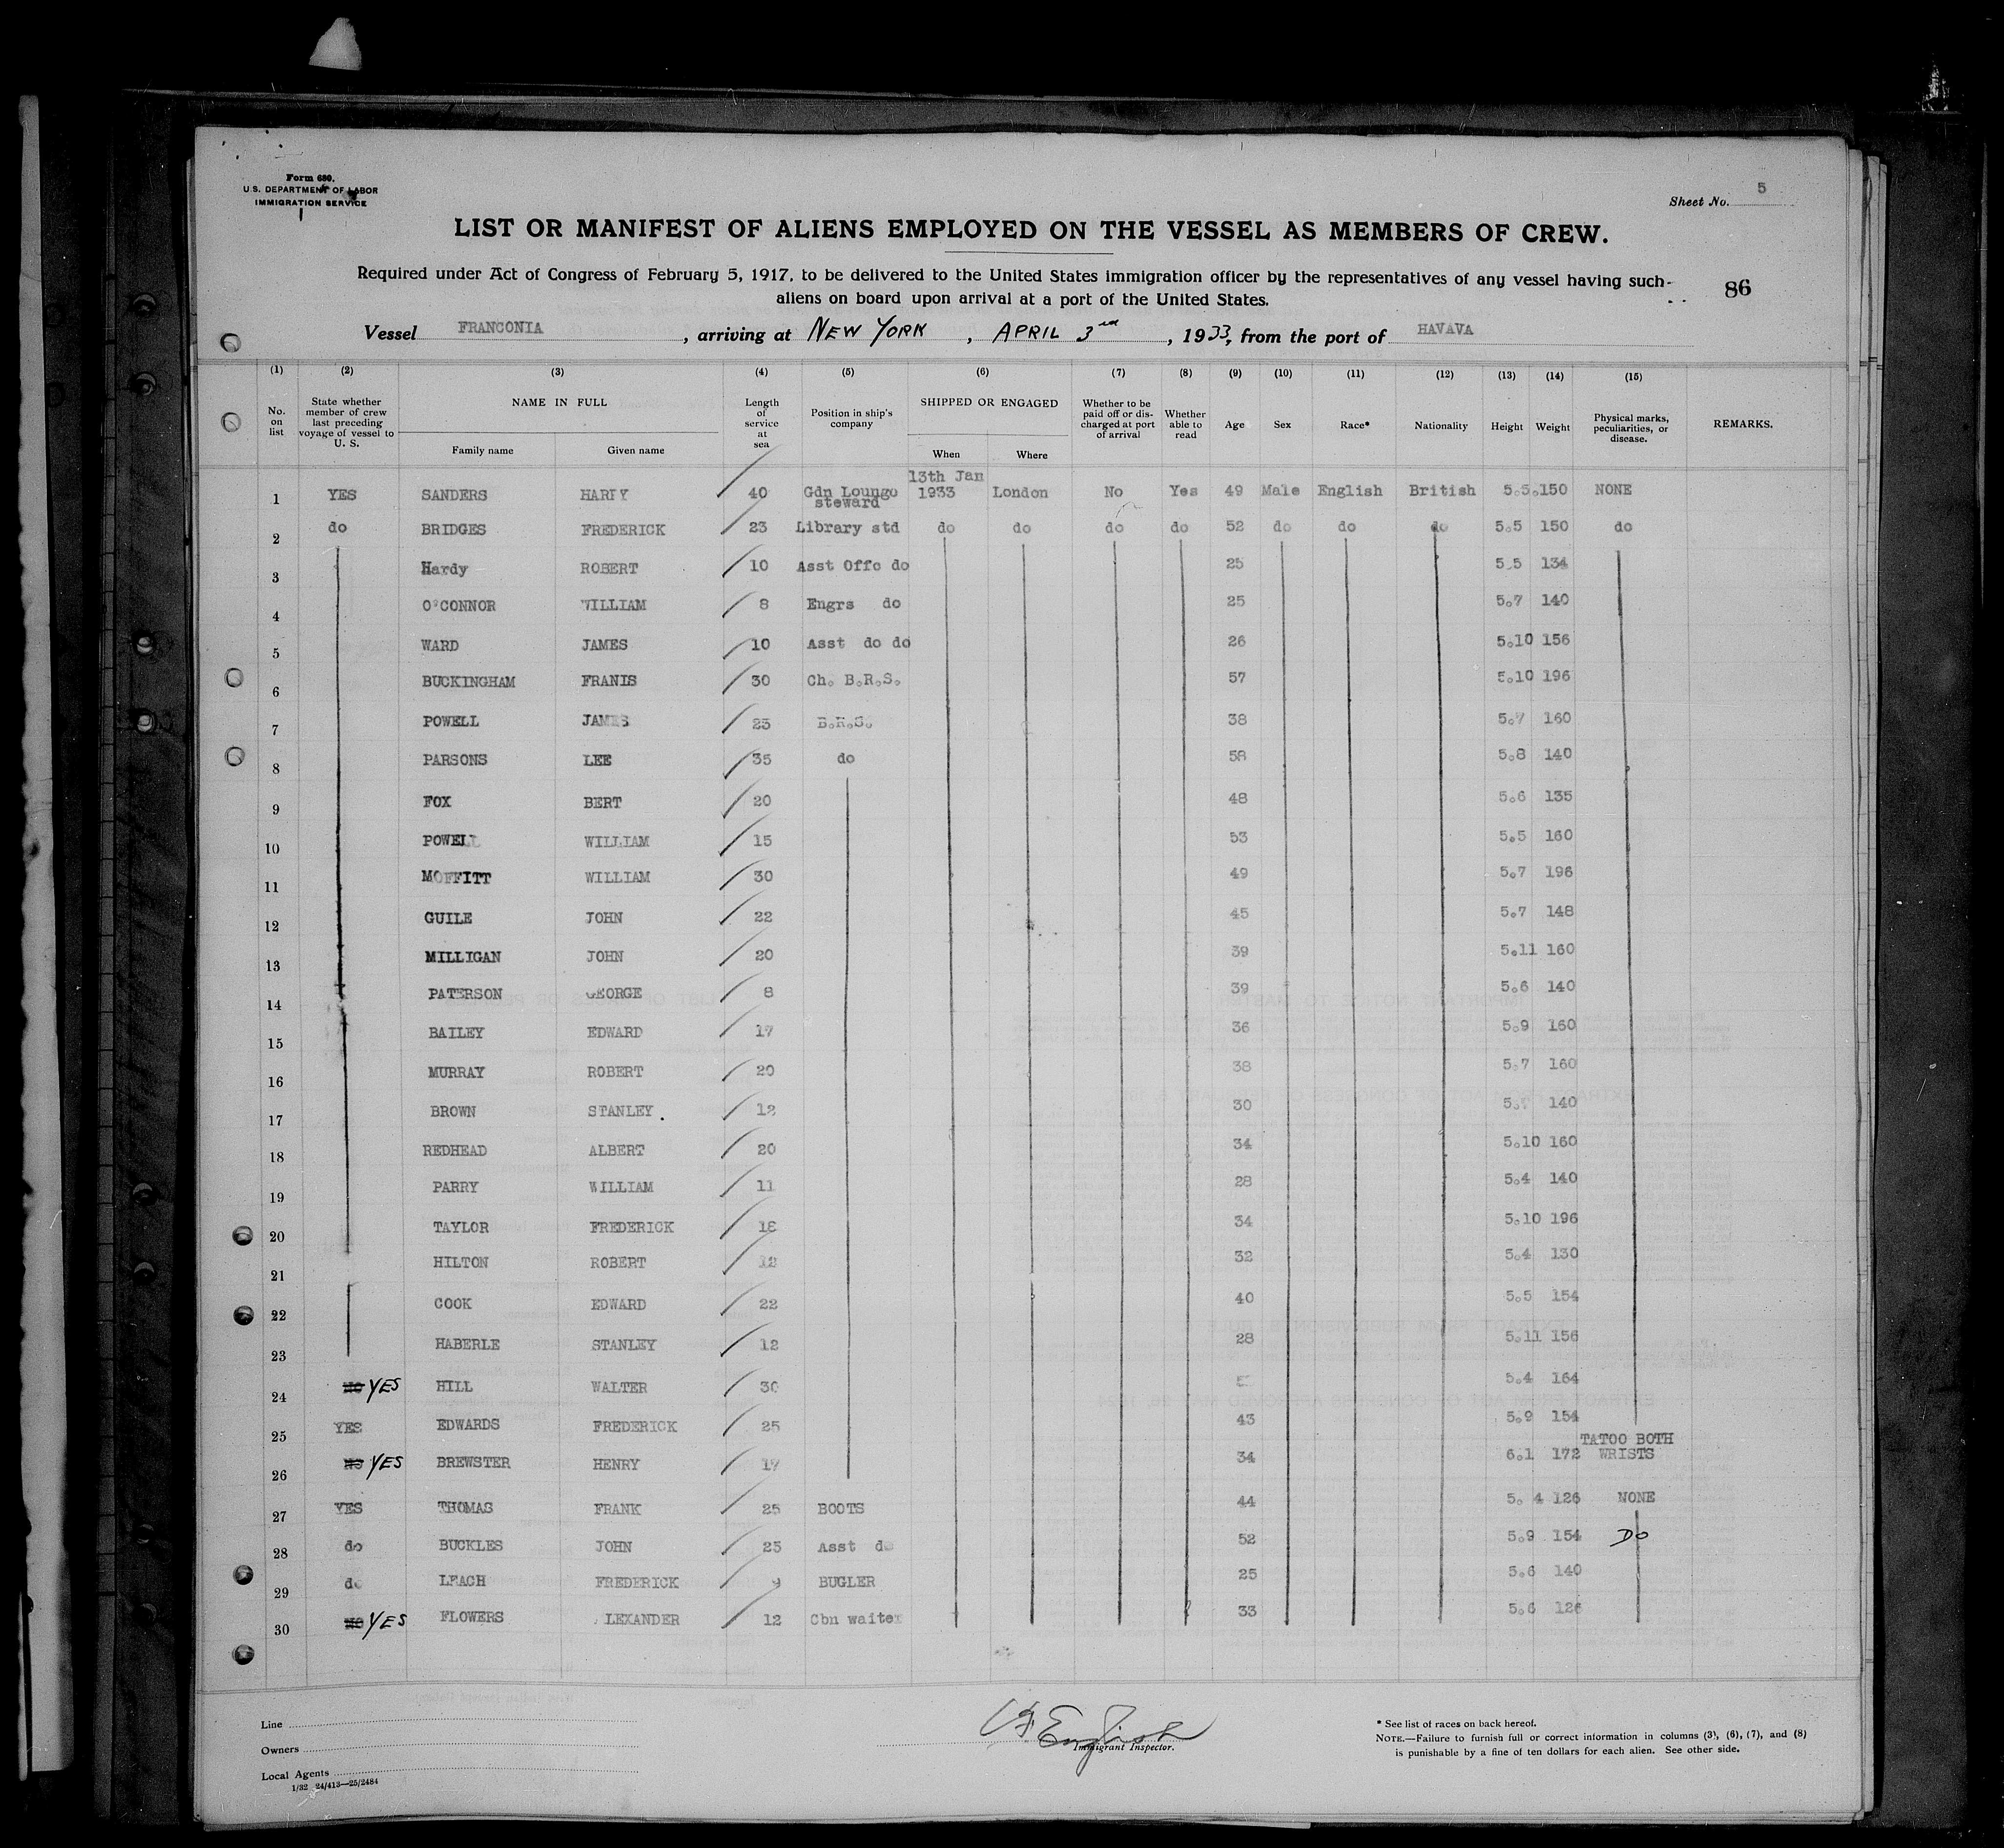 Form 680.
U.S. DEPARTMENT OF LABOR
IMMIGRATION SERVICE
Sheet No. 5
LIST OR MANIFEST OF ALIENS EMPLOYED ON THE VESSEL AS MEMBERS OF CREW.
Required under Act of Congress of February 5, 1917, to be delivered to the United States immigration officer by the representatives of any vessel having such
aliens on board upon arrival at a port of the United States.
86
Vessel FRANCONIA, arriving at NEW YORK, APRIL 3rd, 1933, from the port of HAVAVA
(1) (2) (3) (4) (5) (6) (7) (8) (9) (10) (11) (12) (13) (14) (15)
No. on list
State whether member of crew last preceding voyage of vessel to U. S.
NAME IN FULL
Family name
Given name
Length of service at sea
Position in ship's company
SHIPPED OR ENGAGED
When
Where
Whether to be paid off or discharged at port of arrival
Whether able to read
Age
Sex
Race*
Nationality
Height
Weight
Physical marks, peculiarities, or disease.
REMARKS.
1 YES SANDERS 40 Gdn Loungo steward 13th Jan 1933 London No Yes 49 Male English British 5.5.150 NONE
2 do BRIDGES FREDERICK 23 Library std do do do do 52 do do do 5.5 150 do
3 Hardy ROBERT 10 Asst Offc do 25 5.5 134
4 O'CONNOR WILLIAM 8 Engrs do 25 5.7 140
5 WARD JAMES 10 Asst do do 26 5.10 156
6 BUCKINGHAM FRANIS 30 Ch. B.R.S. 57 5.10 196
7 POWELL JAMES 25 B.R.S. 38 5.7 160
8 PARSONS LEE 35 do 58 5.8 140
9 FOX BERT 20 48 5.6 135
10 POWELL WILLIAM 15 53 5.5 160
11 MOFFITT WILLIAM 30 49 5.7 196
12 GUILE JOHN 22 45 5.7 148
13 MILLIGAN JOHN 20 39 5.11 160
14 PATERSON GEORGE 8 39 5.6 140
15 BAILEY EDWARD 17 36 5.9 160
16 MURRAY ROBERT 20 38 5.7 160
17 BROWN STANLEY. 12 30 140
18 REDHEAD ALBERT 20 34 5.10 160
19 PARRY WILLIAM 11 28 5.4 140
20 TAYLOR FREDERICK 18 34 5.10 196
21 HILTON ROBERT 12 32 5.4 130
22 COOK EDWARD 22 40 5.5 154
23 HABERLE STANLEY 12 28 5.11 156
24 NO YES HILL WALTER 30 5.4 164
25 YES EDWARDS FREDERICK 25 43 5.9 154
26 NO YES BREWSTER HENRY 17 34 6.1 172 TATOO BOTH WRISTS
27 YES THOMAS FRANK 25 BOOTS 44 5. 4 126 NONE
28 do BUCKLES JOHN 25 Asst do 52 5.9 154 DO
29 do LEACH FREDERICK 9 BUGLER 25 5.6 140
30 NO YES FLOWERS LEXANDER 12 Cbn waiter 33 5.6 126
Line
Owners
Local Agents
1/32 24/413—25/2484
English
Immigrant Inspector.
* See list of races on back hereof.
NOTE.—Failure to furnish full or correct information in columns (3), (6), (7), and (8)
is punishable by a fine of ten dollars for each alien. See other side.